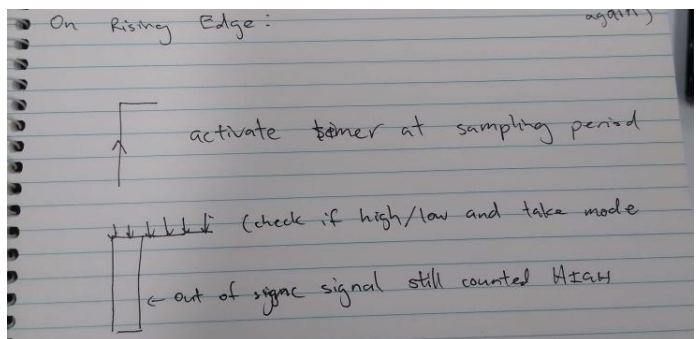 again)
On Rising Edge:
activate timer at sampling period
(check if high/low and take mode
← out of signac signal still counted HIGH